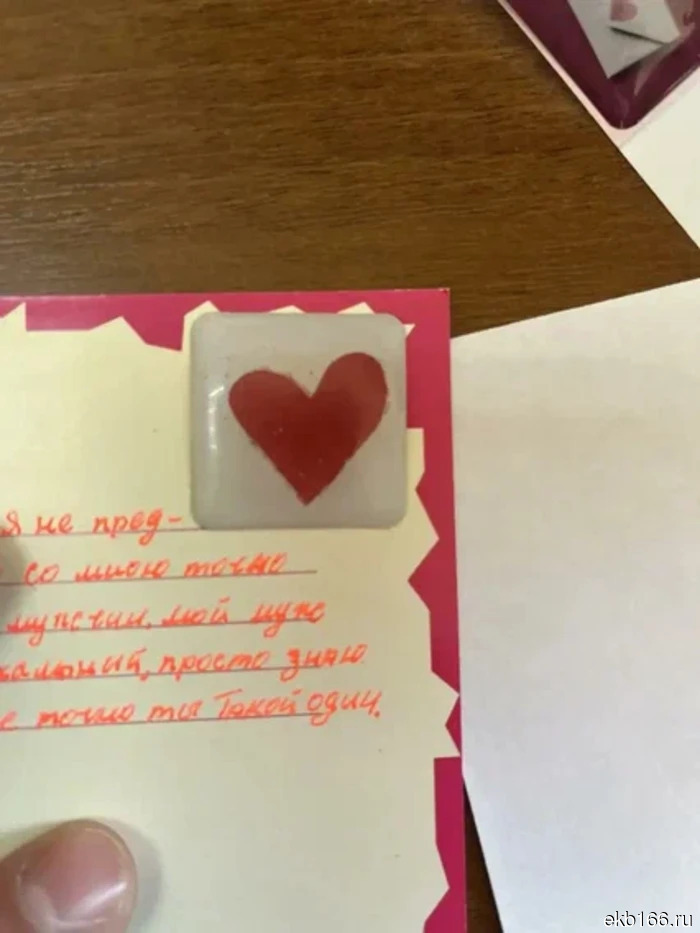 я не пред-
со мною точно
мужчин, мой муж
кальный, просто знаю
е точно ты Такой один.
ekb166.ru